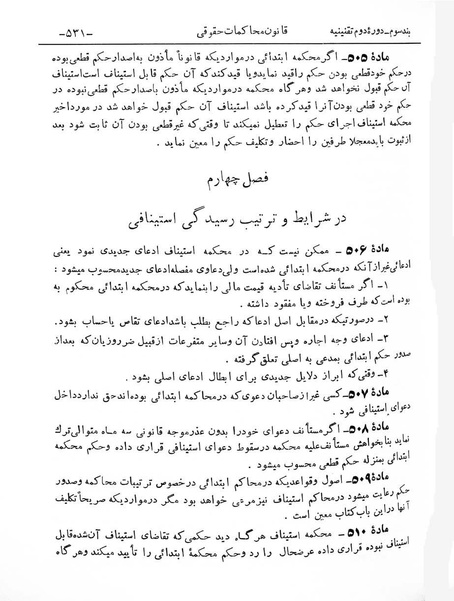 بند سوم ـ دورهٔ دوم تقنینیه
قانون محاکمات حقوقی
ـ ۵۳۱ ـ
مادهٔ ۵۰۵ ـ اگر محکمه ابتدائی در مواردیکه قانوناً مأذون به اصدار حکم قطعی بوده
در حکم خود قطعی بودن حکم را قید نماید و یا قید کند که آن حکم قابل استیناف است استیناف
آن حکم قبول نخواهد شد و هرگاه محکمه در مواردیکه مأذون به اصدار حکم قطعی نبوده در
حکم خود قطعی بودن آنرا قید کرده باشد استیناف آن حکم قبول خواهد شد در مورد اخیر
محکمه استیناف اجرای حکم را تعطیل نمیکند تا وقتی که غیر قطعی بودن آن ثابت شود بعد
از ثبوت باید معجلا طرفین را احضار و تکلیف حکم را معین نماید .
فصل چهارم
در شرایط و ترتیب رسیدگی استینافی
مادهٔ ۵۰۶ ـ ممکن نیست که در محکمه استیناف ادعای جدیدی نمود یعنی
ادعائی غیر از آنکه در محکمه ابتدائی شده است ولی دعاوی مفصله ادعای جدید محسوب میشود :
۱ـ اگر مستأنف تقاضای تأدیه قیمت مالی را بنماید که در محکمه ابتدائی محکوم به
بوده است که طرف فروخته و یا مفقود داشته .
۲ـ در صورتیکه در مقابل اصل ادعا که راجع بطلب باشد ادعای تقاص یا حساب بشود.
۳ـ ادعای وجه اجاره و پس افتادن آن و سایر متفرعات از قبیل ضرر و زیان که بعد از
صدور حکم ابتدائی بمدعی به اصلی تعلق گرفته .
۴ـ وقتی که ابراز دلایل جدیدی برای ابطال ادعای اصلی بشود .
مادهٔ ۵۰۷ ـ کسی غیر از صاحبان دعوی که در محاکمه ابتدائی بوده اند حق ندارد داخل
دعوای استینافی شود .
مادهٔ ۵۰۸ ـ اگر مستأنف دعوای خود را بدون عذر موجه قانونی سه ماه متوالی ترک
نماید بنا بخواهش مستأنف علیه محکمه در سقوط دعوای استینافی قراری داده و حکم محکمه
ابتدائی بمنزله حکم قطعی محسوب میشود .
مادهٔ ۵۰۹ ـ اصول و قواعدیکه در محاکم ابتدائی در خصوص ترتیبات محاکمه و صدور
حکم رعایت میشود در محاکم استیناف نیز مرعی خواهد بود مگر در مواردیکه صریحاً تکلیف
آنها در این باب کتاب معین است .
مادهٔ ۵۱۰ ـ محکمه استیناف هرگاه دید حکمی که تقاضای استیناف آن شده قابل
استیناف نبوده قراری داده عرضحال را رد و حکم محکمهٔ ابتدائی را تأیید میکند و هرگاه